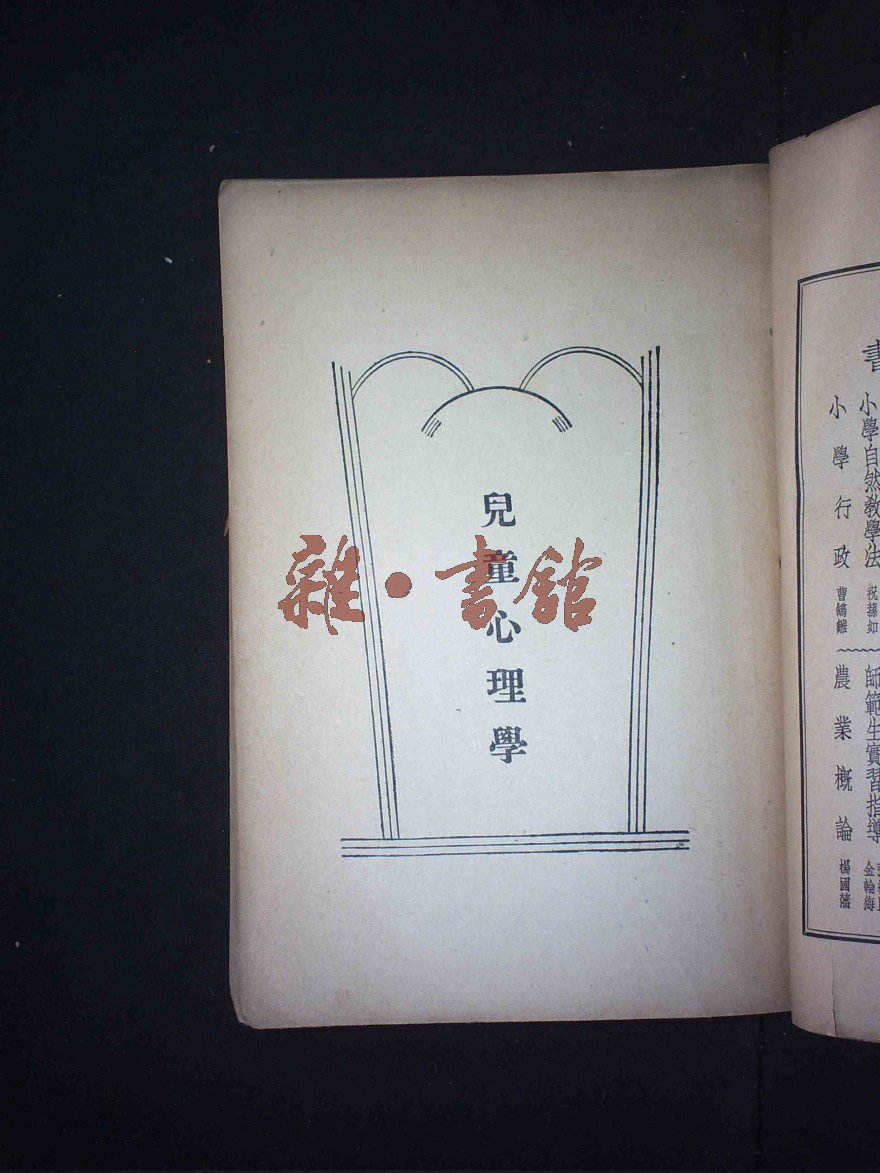 兒童心理學
雜·書館
書
小學自然教學法 祝蓀如
師範生實習指導 金輪海
小學行政 曹鵠雛
農業概論 楊國藩